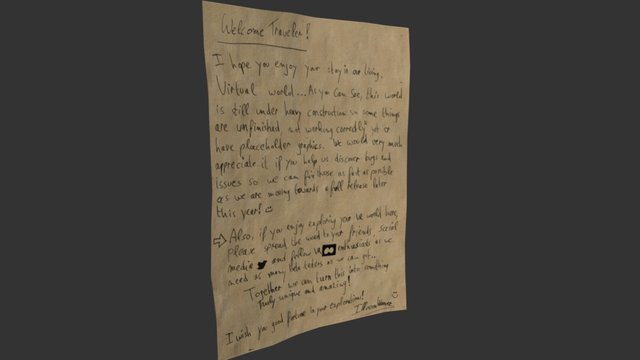 Welcome Traveler!
I hope you enjoy your stay in our living,
Virtual world... As you can see, this world
is still under heavy construction so some things
are unfinished, not working correctly yet or
have placeholder graphics. We would very much
appreciate it if you help us discover bugs and
issues so we can fix those as fast as possible
as we are moving towards a full release later
this year!
Also, if you enjoy exploring our VR world here,
please spread the word to your friends, social
media and fellow VR enthusiasts as we
need as many beta testers as we can get...
Together we can turn this into something
Truly unique and amazing!
I wish you good fortune in your explorations!